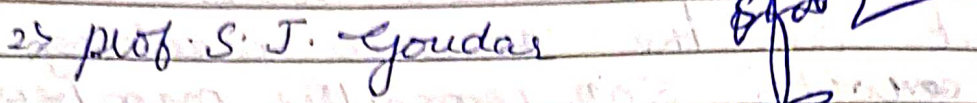 2> Prof. S. J. Goudar